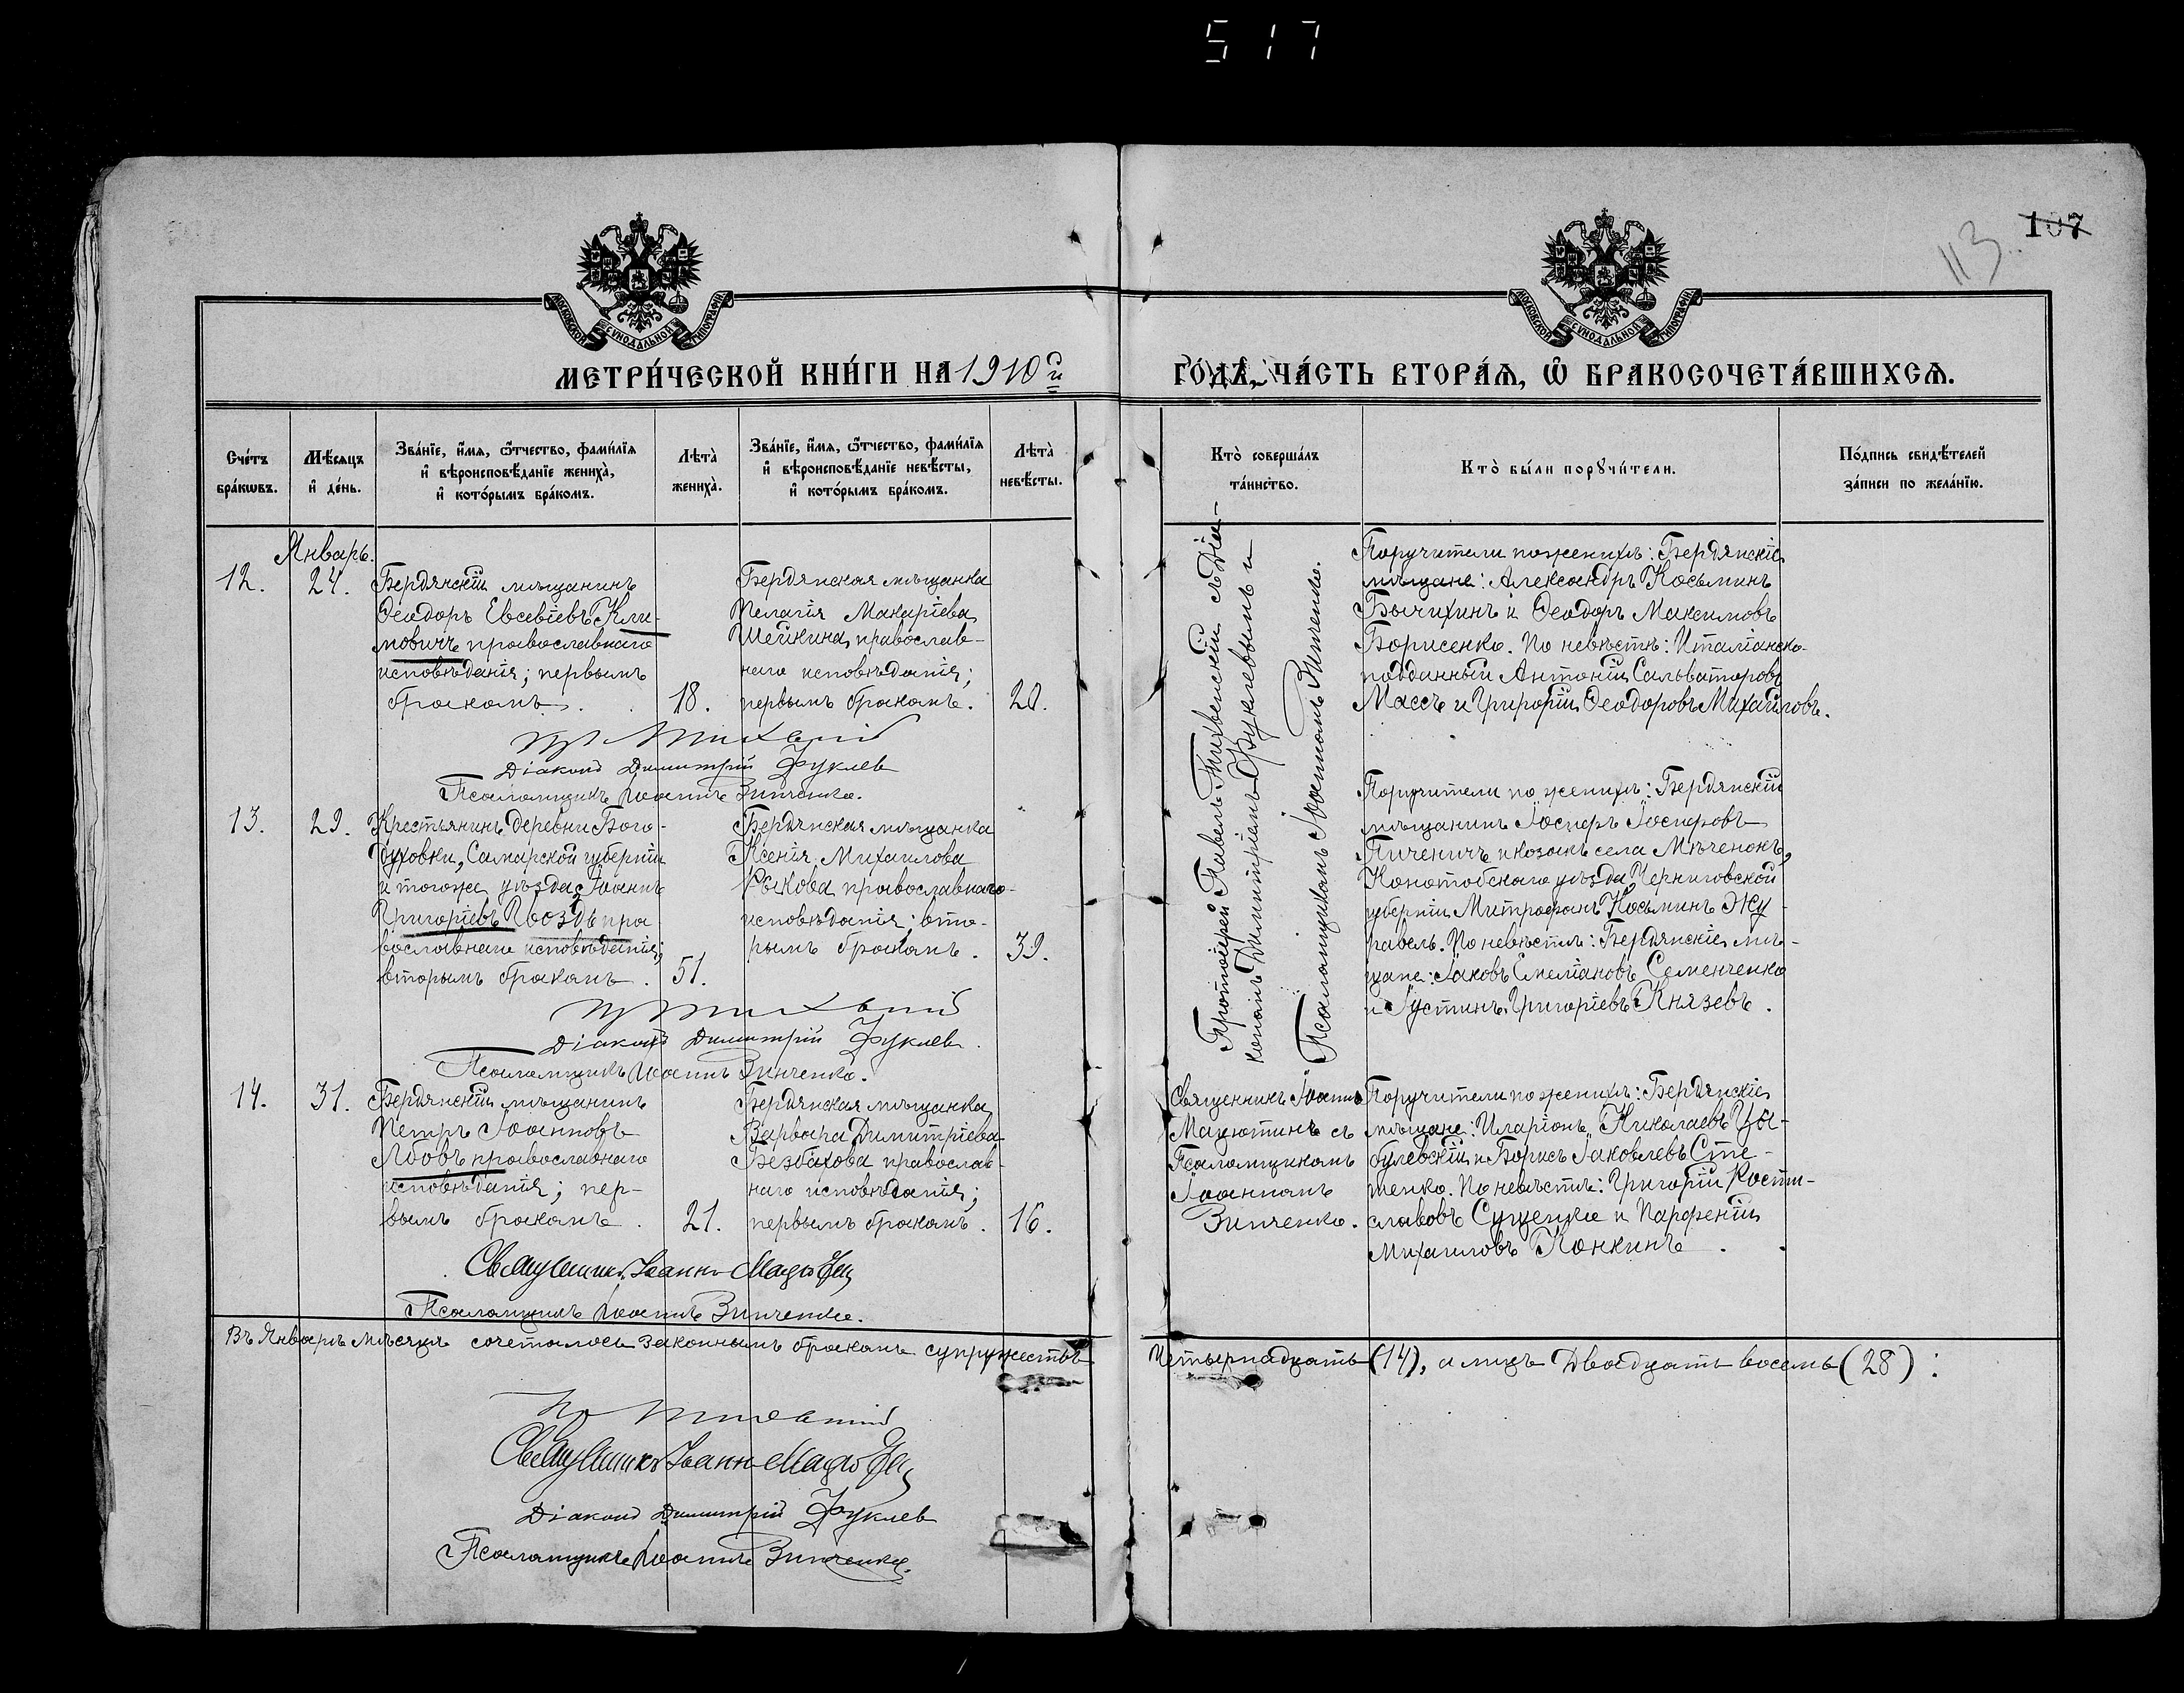 517
107
113.
МОСКОВСКОЙ СѴНОДАЛЬНОЙ ТИПОГРАФІИ
МОСКОВСКОЙ СѴНОДАЛЬНОЙ ТИПОГРАФІИ
МЕТРИ́ЧЕСКОЙ КНИ́ГИ НА 1910й ГО́ДА, ЧА́СТЬ ВТОРА́Ѧ, Ѡ҆ БРАКОСОЧЕТА́ВШИХСѦ.
Сче́тъ бра́кѡвъ.
Мѣ́сѧцъ и҆ де́нь.
Зва́нїе, и҆́мѧ, ѻ҆́тчество, фами́лїѧ
и҆ вѣроисповѣ́данїе жениха̀,
и҆ кото́рымъ бра́комъ.
Лѣта̀ жениха̀.
Зва́нїе, и҆́мѧ, ѻ҆́тчество, фами́лїѧ
и҆ вѣроисповѣ́данїе невѣ́сты,
и҆ кото́рымъ бра́комъ.
Лѣта̀ невѣ́сты.
Кто̀ соверша́лъ та́инство.
Кто̀ бы́ли порꙋчи́тели.
По́дпись свидѣ́телей за́писи по жела́нїю.
Январь.
12.
24.
Бердянскій мѣщанинъ
Ѳеодоръ Евсевіевъ Кли-
мовичъ православнаго
исповѣданія; первымъ
бракомъ.
18.
Бердянская мѣщанка
Пелагія Макаріева
Шейкина, православ-
наго исповѣданія;
первымъ бракомъ.
20.
Протоіерей Павелъ Тихвинскій съ Діа-
кономъ Димитріемъ Фуклевымъ и
Псаломщикомъ Іоанномъ Зинченко.
Поручители по женихѣ: Бердянскіе
мѣщане: Александръ Косьминъ
Бычихинъ и Ѳеодоръ Максимовъ
Борисенко. По невѣстѣ: Италіанско-
подданный Антоній Сальваторовъ
Массъ и Григорій Ѳеодоровъ Михайловъ.
Діаконъ Димитрій Фуклев
Псаломщикъ Іоаннъ Зинченко.
13.
29.
Крестьянинъ деревни Бого-
духовки, Самарской губерніи
и тогоже уѣзда, Іоаннъ
Григоріевъ Гвоздь пра-
вославнаго исповѣданія;
вторымъ бракомъ.
51.
Бердянская мѣщанка
Ксенія Михаилова
Рыкова православнаго
исповѣданія; вто-
рымъ бракомъ.
39.
Поручители по женихѣ: Бердянскій
мѣщанинъ Іосифъ Іосифовъ
Пиченичъ и козакъ села Мѣченокъ,
Конотобскаго уѣзда, Черниговской
губерніи Митрофанъ Косьминъ Жу-
равель. По невѣстѣ: Бердянскіе мѣ-
щане: Іаковъ Емеліановъ Семенченко
и Іустинъ Григоріевъ Князевъ.
Діаконъ Димитрій Фуклев.
Псаломщикъ Іоаннъ Зинченко.
14.
31.
Бердянскій мѣщанинъ
Петръ Іоанновъ
Лбовъ православнаго
исповѣданія; пер-
вымъ бракомъ.
21.
Бердянская мѣщанка
Варвара Димитріева
Безбахова православ-
наго исповѣданія;
первымъ бракомъ.
16.
Священникъ Іоаннъ
Мацютинъ съ
Псаломщикомъ
Іоанномъ
Зинченко.
Поручители по женихѣ: Бердянскіе
мѣщане: Иларіонъ Николаевъ Цы-
булевскій и Борисъ Іаковлевъ Сте-
ценко. По невѣстѣ: Григорій Рости-
славовъ и Парфеній
Михаиловъ Конкинъ.
Священникъ Іоаннъ Мацютин
Псаломщикъ Іоаннъ Зинченко.
Въ Январѣ мѣсяцѣ сочеталось законнымъ бракомъ супружествъ четырнадцать (14), а лицъ двадцать восемь (28):
Священникъ Іоаннъ Мацютин
Діаконъ Димитрій Фуклев
Псаломщикъ Іоаннъ Зинченко.